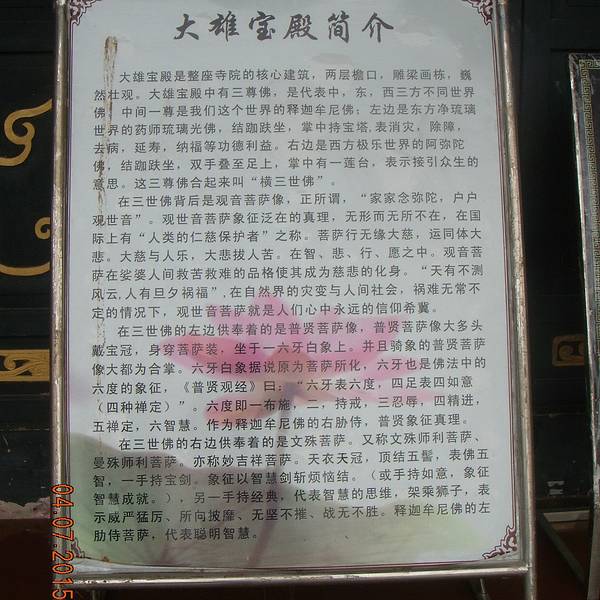 大雄宝殿简介
大雄宝殿是整座寺院的核心建筑，两层檐口，雕梁画栋，巍
然壮观。大雄宝殿中有三尊佛，是代表中，东，西三方不同世界
佛。中间一尊是我们这个世界的释迦牟尼佛；左边是东方净琉璃
世界的药师琉璃光佛，结跏趺坐，掌中持宝塔，表消灾，除障，
去病，延寿，纳福等功德利益。右边是西方极乐世界的阿弥陀
佛，结跏趺坐，双手叠至足上，掌中有一莲台，表示接引众生的
意思。这三尊佛合起来叫“横三世佛”。
在三世佛背后是观音菩萨像，正所谓，“家家念弥陀，户户
观世音”。观世音菩萨象征泛在的真理，无形而无所不在，在国
际上有“人类的仁慈保护者”之称。菩萨行无缘大慈，运同体大
悲。大慈与人乐，大悲拔人苦。在智、悲、行、愿之中。观音菩
萨在娑婆人间救苦救难的品格使其成为慈悲的化身。“天有不测
风云，人有旦夕祸福”，在自然界的灾变与人间社会，祸难无常不
定的情况下，观世音菩萨就是人们心中永远的信仰希冀。
在三世佛的左边供奉着的是普贤菩萨像，普贤菩萨像大多头
戴宝冠，身穿菩萨装，坐于一六牙白象上。并且骑象的普贤菩萨
像大都为合掌。六牙白象据说原为菩萨所化，六牙也是佛法中的
六度的象征，《普贤观经》曰：“六牙表六度，四足表四如意
（四种禅定）”。六度即一布施，二，持戒，三忍辱，四精进，
五禅定，六智慧。作为释迦牟尼佛的右胁侍，普贤象征真理。
在三世佛的右边供奉着的是文殊菩萨。又称文殊师利菩萨、
曼殊师利菩萨。亦称妙吉祥菩萨。天衣天冠，顶结五髻，表佛五
智，一手持宝剑。象征以智慧剑斩烦恼结。（或手持如意，象征
智慧成就。），另一手持经典，代表智慧的思维，架乘狮子，表
示威严猛厉、所向披靡、无坚不摧、战无不胜。释迦牟尼佛的左
肋侍菩萨，代表聪明智慧。
04.07.2015